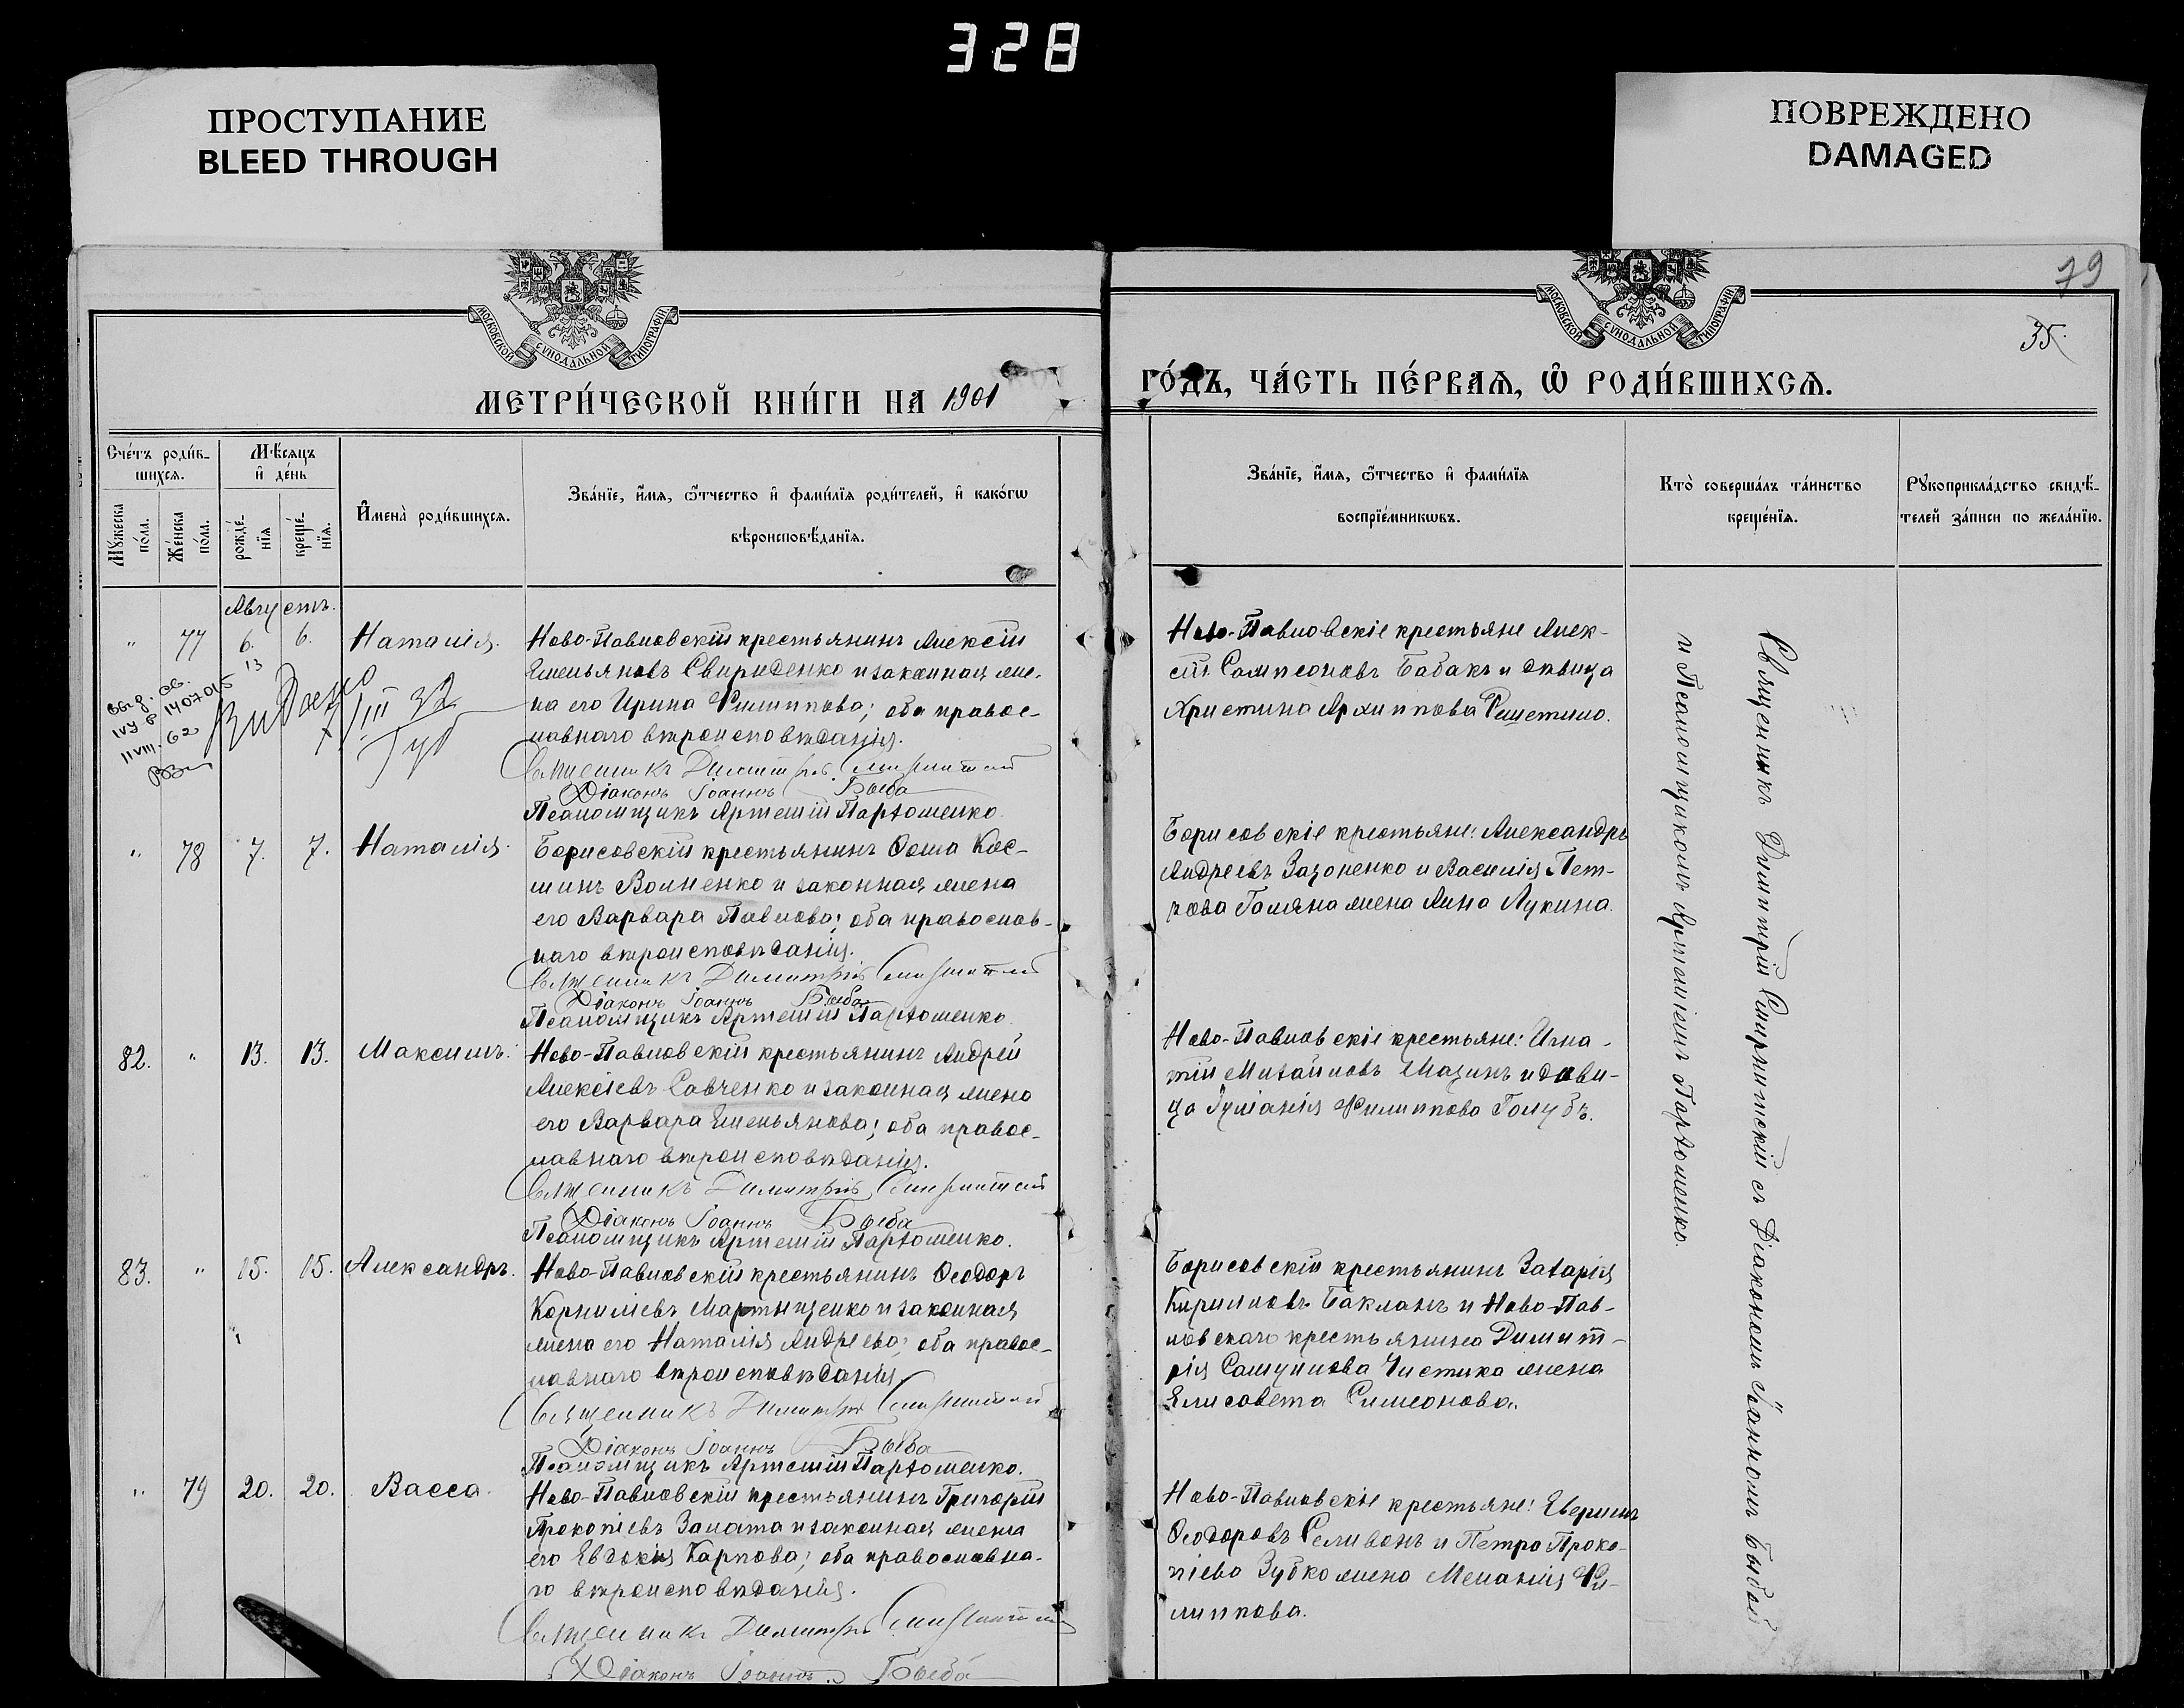 328
ПРОСТУПАНИЕ
BLEED THROUGH
ПОВРЕЖДЕНО
DAMAGED
79
35.
МОСКОВСКОЙ СѴНОДАЛЬНОЙ ТИПОГРАФІИ
МОСКОВСКОЙ СѴНОДАЛЬНОЙ ТИПОГРАФІИ
МЕТРИ́ЧЕСКОЙ КНИ́ГИ НА 1901
ГО́ДЪ, ЧА́СТЬ ПЕ́РВАЯ, Ѡ РОДИ́ВШИХСЯ.
Сче́тъ роди́в-
шихся.
Мꙋ́жеска по́ла.
Же́нска по́ла.
Мѣ́сяцъ
и҆ де́нь
рожде́-
нїя
креще́-
нїя.
И҆мена̀ роди́вшихся.
Зва́нїе, и҆́мя, ѻ҆́тчество и҆ фами́лїя роди́телей, и҆ како́гѡ
вѣроисповѣ́данїя.
Зва́нїе, и҆́мя, ѻ҆́тчество и҆ фами́лїя
воспрїе́мникѡвъ.
Кто̀ соверша́лъ та́инство
креще́нїя.
Рꙋкоприкла́дство свидѣ́-
телей за́писи по жела́нїю.
Августъ.
" 77 6. 6. Наталія.
Ново-Павловскій крестьянинъ Алексій
Емельяновъ Свириденко и законная же-
на его Ирина Филиппова; оба правос-
лавнаго вѣроисповѣданія.
Священникъ Димитрій Смирнитскій
Діаконъ Іоаннъ Быба
Псаломщикъ Артемій Пархоменко.
Ново-Павловскіе крестьяне Алек-
сій Сампсоновъ Бабак и дѣвица
Христина Архиппова Решетило.
13
140705
11 VIII. 62
Видано
7/III 32
" 78 7. 7. Наталія.
Борисовскій крестьянинъ Ѳома Кос-
минъ Волненко и законная жена
его Варвара Павлова; оба православ-
наго вѣроисповѣданія.
Священникъ Димитрій Смирнитскій
Діаконъ Іоаннъ Быба
Псаломщикъ Артемій Пархоменко.
Борисовскіе крестьяне: Александръ
Андреевъ Зазоненко и Василія Пет-
рова Голяна жена Анна Лукина.
82. " 13. 13. Максимъ.
Ново-Павловскій крестьянинъ Андрей
Алексіевъ Савченко и законная жена
его Варвара Емельянова; оба правос-
лавнаго вѣроисповѣданія.
Священникъ Димитрій Смирнитскій
Діаконъ Іоаннъ Быба
Псаломщикъ Артемій Пархоменко.
Ново-Павловскіе крестьяне: Игна-
тій Михайловъ Мазинъ и дѣви-
ца Іуліанія Филиппова Голубъ.
83. " 15. 15. Александръ.
Ново-Павловскій крестьянинъ Ѳеодоръ
Корниліевъ Мартыщенко и законная
жена его Наталія Андреева; оба правос-
лавнаго вѣроисповѣданія.
Священникъ Димитрій Смирнитскій
Діаконъ Іоаннъ Быба
Псаломщикъ Артемій Пархоменко.
Борисовскій крестьянинъ Захарія
Кирилловъ Бакланъ и Ново-Пав-
ловскаго крестьянина Димит-
рія Самуилова Чистика жена
Елисавета Симеонова.
" 79 20. 20. Васса.
Ново-Павловскій крестьянинъ Григорій
Прокопіевъ Замата и законная жена
его Евдокія Карпова; оба православна-
го вѣроисповѣданія.
Священникъ Димитрій Смирнитскій
Діаконъ Іоаннъ Быба
Ново-Павловскіе крестьяне:
Ѳеодоровъ Селивонъ и Петра Проко-
піева Зубко жена Меланія Фи-
липпова.
Священникъ Димитрій Смирнитскій съ Діакономъ Іоанномъ Быбой
и Псаломщикомъ Артеміемъ Пархоменко.